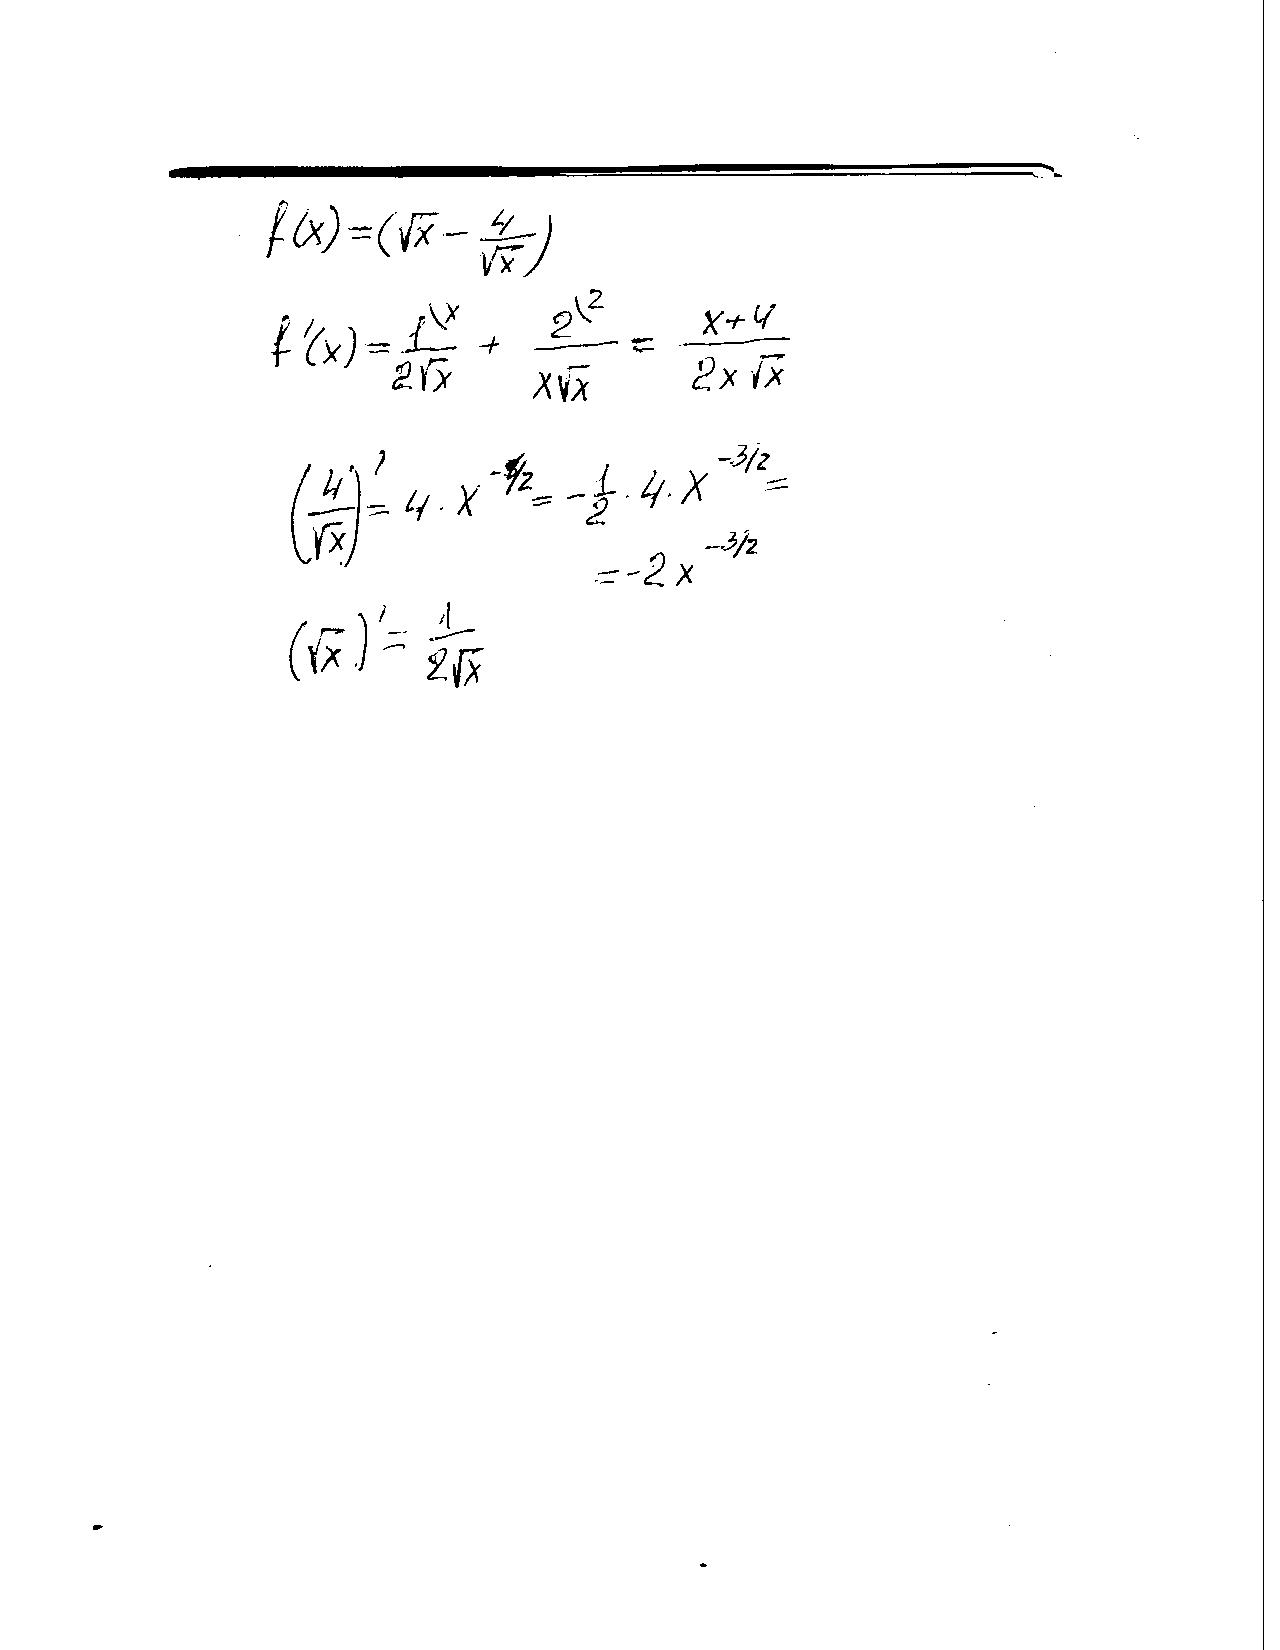 f(x)=(√x - 4/√x)
f'(x)= 1\x/2√x + 2\2/x√x = x+4/2x√x
(4/√x)' = 4·x^-1/2 = -1/2·4·x^-3/2 =
= -2x^-3/2
(√x)' = 1/2√x